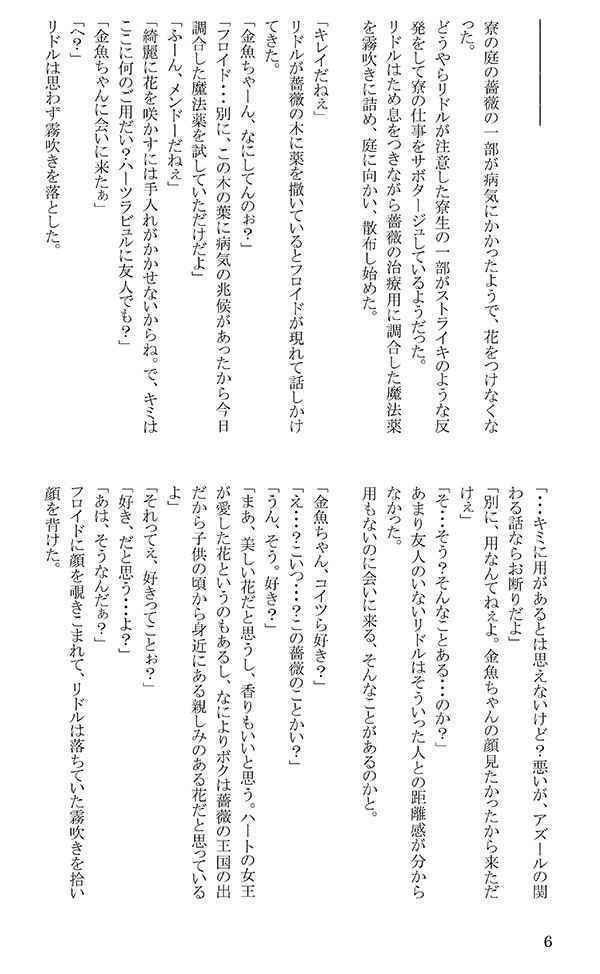 寮の庭の薔薇の一部が病気にかかったようで、花をつけなくな
った。
どうやらリドルが注意した寮生の一部がストライキのような反
発をして寮の仕事をサボタージュしているようだった。
リドルはため息をつきながら薔薇の治療用に調合した魔法薬
を霧吹きに詰め、庭に向かい、散布し始めた。
「キレイだねぇ」
リドルが薔薇の木に薬を撒いているとフロイドが現れて話しかけ
てきた。
「金魚ちゃーん、なにしてんのぉ？」
「フロイド・・・別に、この木の葉に病気の兆候があったから今日
調合した魔法薬を試していただけだよ」
「ふーん、メンドーだねぇ」
「綺麗に花を咲かすには手入れがかかせないからね。で、キミは
ここに何のご用だい？ハーツラビュルに友人でも？」
「金魚ちゃんに会いに来たぁ」
「へ？」
リドルは思わず霧吹きを落とした。
「・・・キミに用があるとは思えないけど？悪いが、アズールの関
わる話ならお断りだよ」
「別に、用なんてねぇよ。金魚ちゃんの顔見たかったから来ただ
けぇ」
「そ・・・そう？そんなことある・・・のか？」
あまり友人のいないリドルはそういった人との距離感が分から
なかった。
用もないのに会いに来る、そんなことがあるのかと。
「金魚ちゃん、コイツら好き？」
「え・・・？こいつ・・・？この薔薇のことかい？」
「うん、そう。好き？」
「まあ、美しい花だと思うし、香りもいいと思う。ハートの女王
が愛した花というのもあるし、なによりボクは薔薇の王国の出
だから子供の頃から身近にある親しみのある花だと思っている
よ」
「それってぇ、好きってことぉ？」
「好き、だと思う・・・よ？」
「あは、そうなんだぁ？」
フロイドに顔を覗きこまれて、リドルは落ちていた霧吹きを拾い
顔を背けた。
6